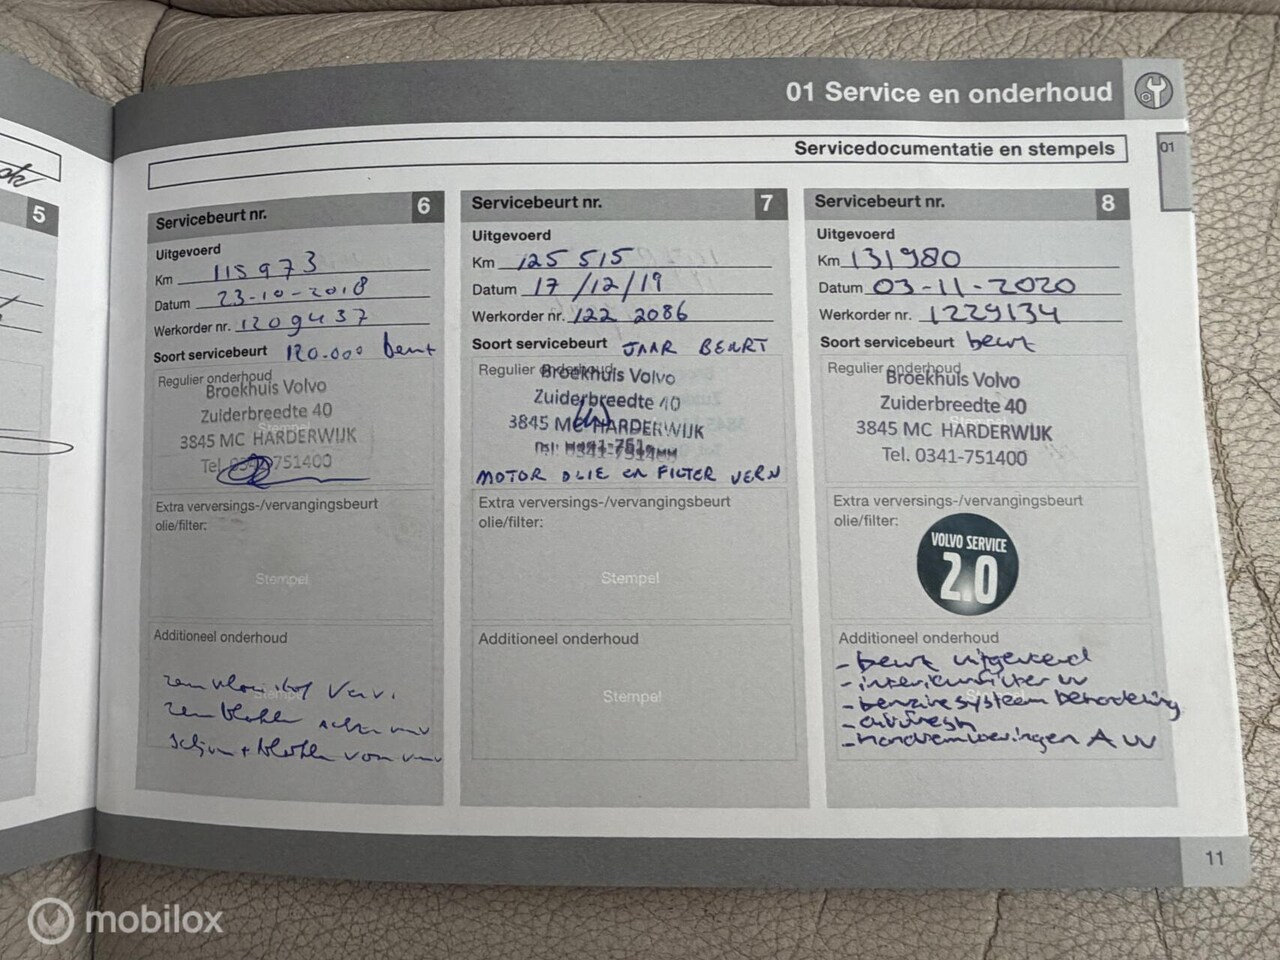 01 Service en onderhoud
Servicedocumentatie en stempels
01
5
Servicebeurt nr. 6
Uitgevoerd
Km 115973
Datum 23-10-2018
Werkorder nr. 1209437
Soort servicebeurt 120.000 beurt
Regulier onderhoud
Broekhuis Volvo
Zuiderbreedte 40
3845 MC HARDERWIJK
Tel. 0341-751400
Extra verversings-/vervangingsbeurt
olie/filter:
Stempel
Additioneel onderhoud
remvloeistof verv.
remblokken achter
schijven + blokken voor
Servicebeurt nr. 7
Uitgevoerd
Km 125 515
Datum 17/12/19
Werkorder nr. 122 2086
Soort servicebeurt JAAR BEURT
Regulier onderhoud
Broekhuis Volvo
Zuiderbreedte 40
3845 MC HARDERWIJK
Tel. 0341-751400
MOTOR OLIE EN FILTER VERV
Extra verversings-/vervangingsbeurt
olie/filter:
Stempel
Additioneel onderhoud
Stempel
Servicebeurt nr. 8
Uitgevoerd
Km 131980
Datum 03-11-2020
Werkorder nr. 1229134
Soort servicebeurt beurt
Regulier onderhoud
Broekhuis Volvo
Zuiderbreedte 40
3845 MC HARDERWIJK
Tel. 0341-751400
Extra verversings-/vervangingsbeurt
olie/filter:
VOLVO SERVICE
2.0
Additioneel onderhoud
- beurt uitgevoerd
- interieurfilter vv
- benzinesysteem behandeling
- airfresh
- handremvoeringen A vv
11
mobilox